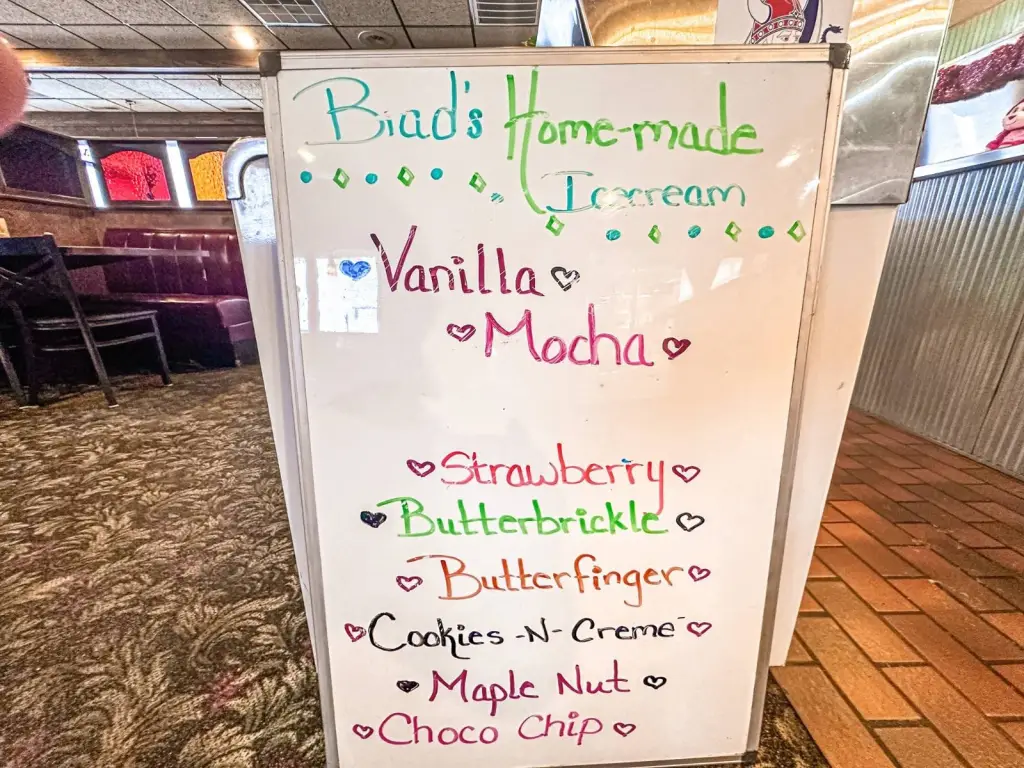 Brad's Home-made
Icecream
Vanilla
Mocha
Strawberry
Butterbrickle
Butterfinger
Cookies -N- Creme
Maple Nut
Choco Chip